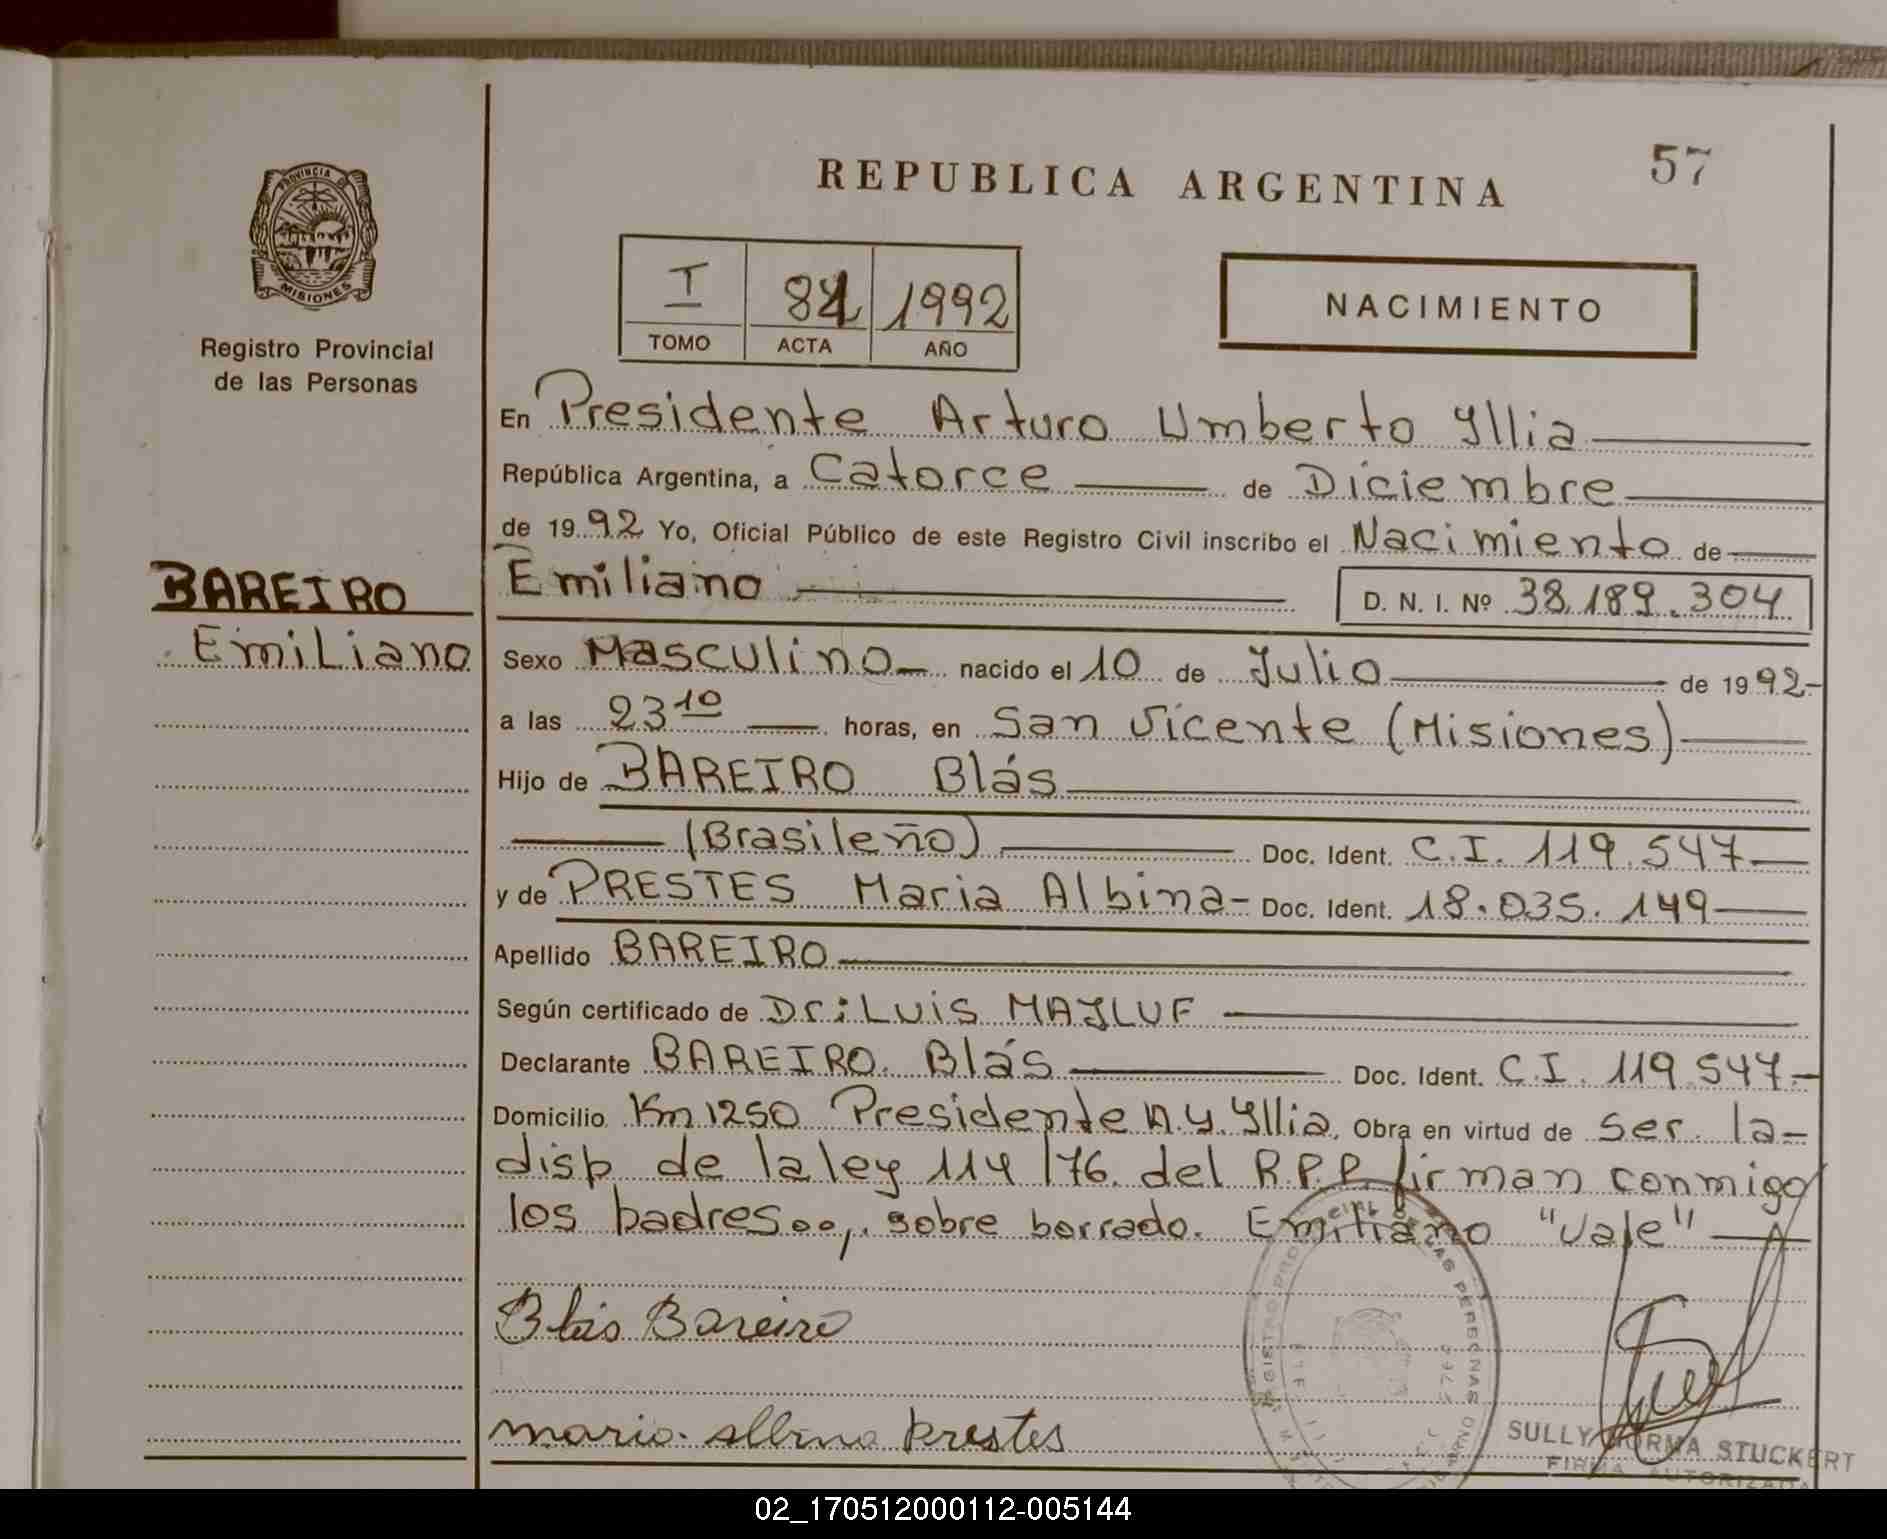 57
REPUBLICA ARGENTINA
PROVINCIA DE
MISIONES
Registro Provincial
de las Personas
I 84 1992
TOMO ACTA AÑO
NACIMIENTO
En Presidente Arturo Umberto Yllia
República Argentina, a Catorce de Diciembre
de 1992 Yo, Oficial Público de este Registro Civil inscribo el Nacimiento de
BAREIRO
Emiliano
Emiliano D. N. I. Nº 38.189.304
Sexo Masculino nacido el 10 de Julio de 1992-
a las 23 10 horas, en San Vicente (Misiones)
Hijo de BAREIRO Blás
(Brasileño) Doc. Ident. C.I. 119.547
y de PRESTES Maria Albina- Doc. Ident. 18.035.149
Apellido BAREIRO
Según certificado de Dr: Luis MAJLUF
Declarante BAREIRO. Blás Doc. Ident. C.I. 119.547.-
Domicilio Km 1250 Presidente A.U. Yllia. Obra en virtud de Ser. la-
disp de la ley 114/76. del R.P.P. firman conmigo
los padres..,. sobre borrado. Emiliano "Vale"
Blás Bareiro
maria. Albina Prestes
SULLY NORMA STUCKERT
FIRMA AUTORIZADA
02_170512000112-005144